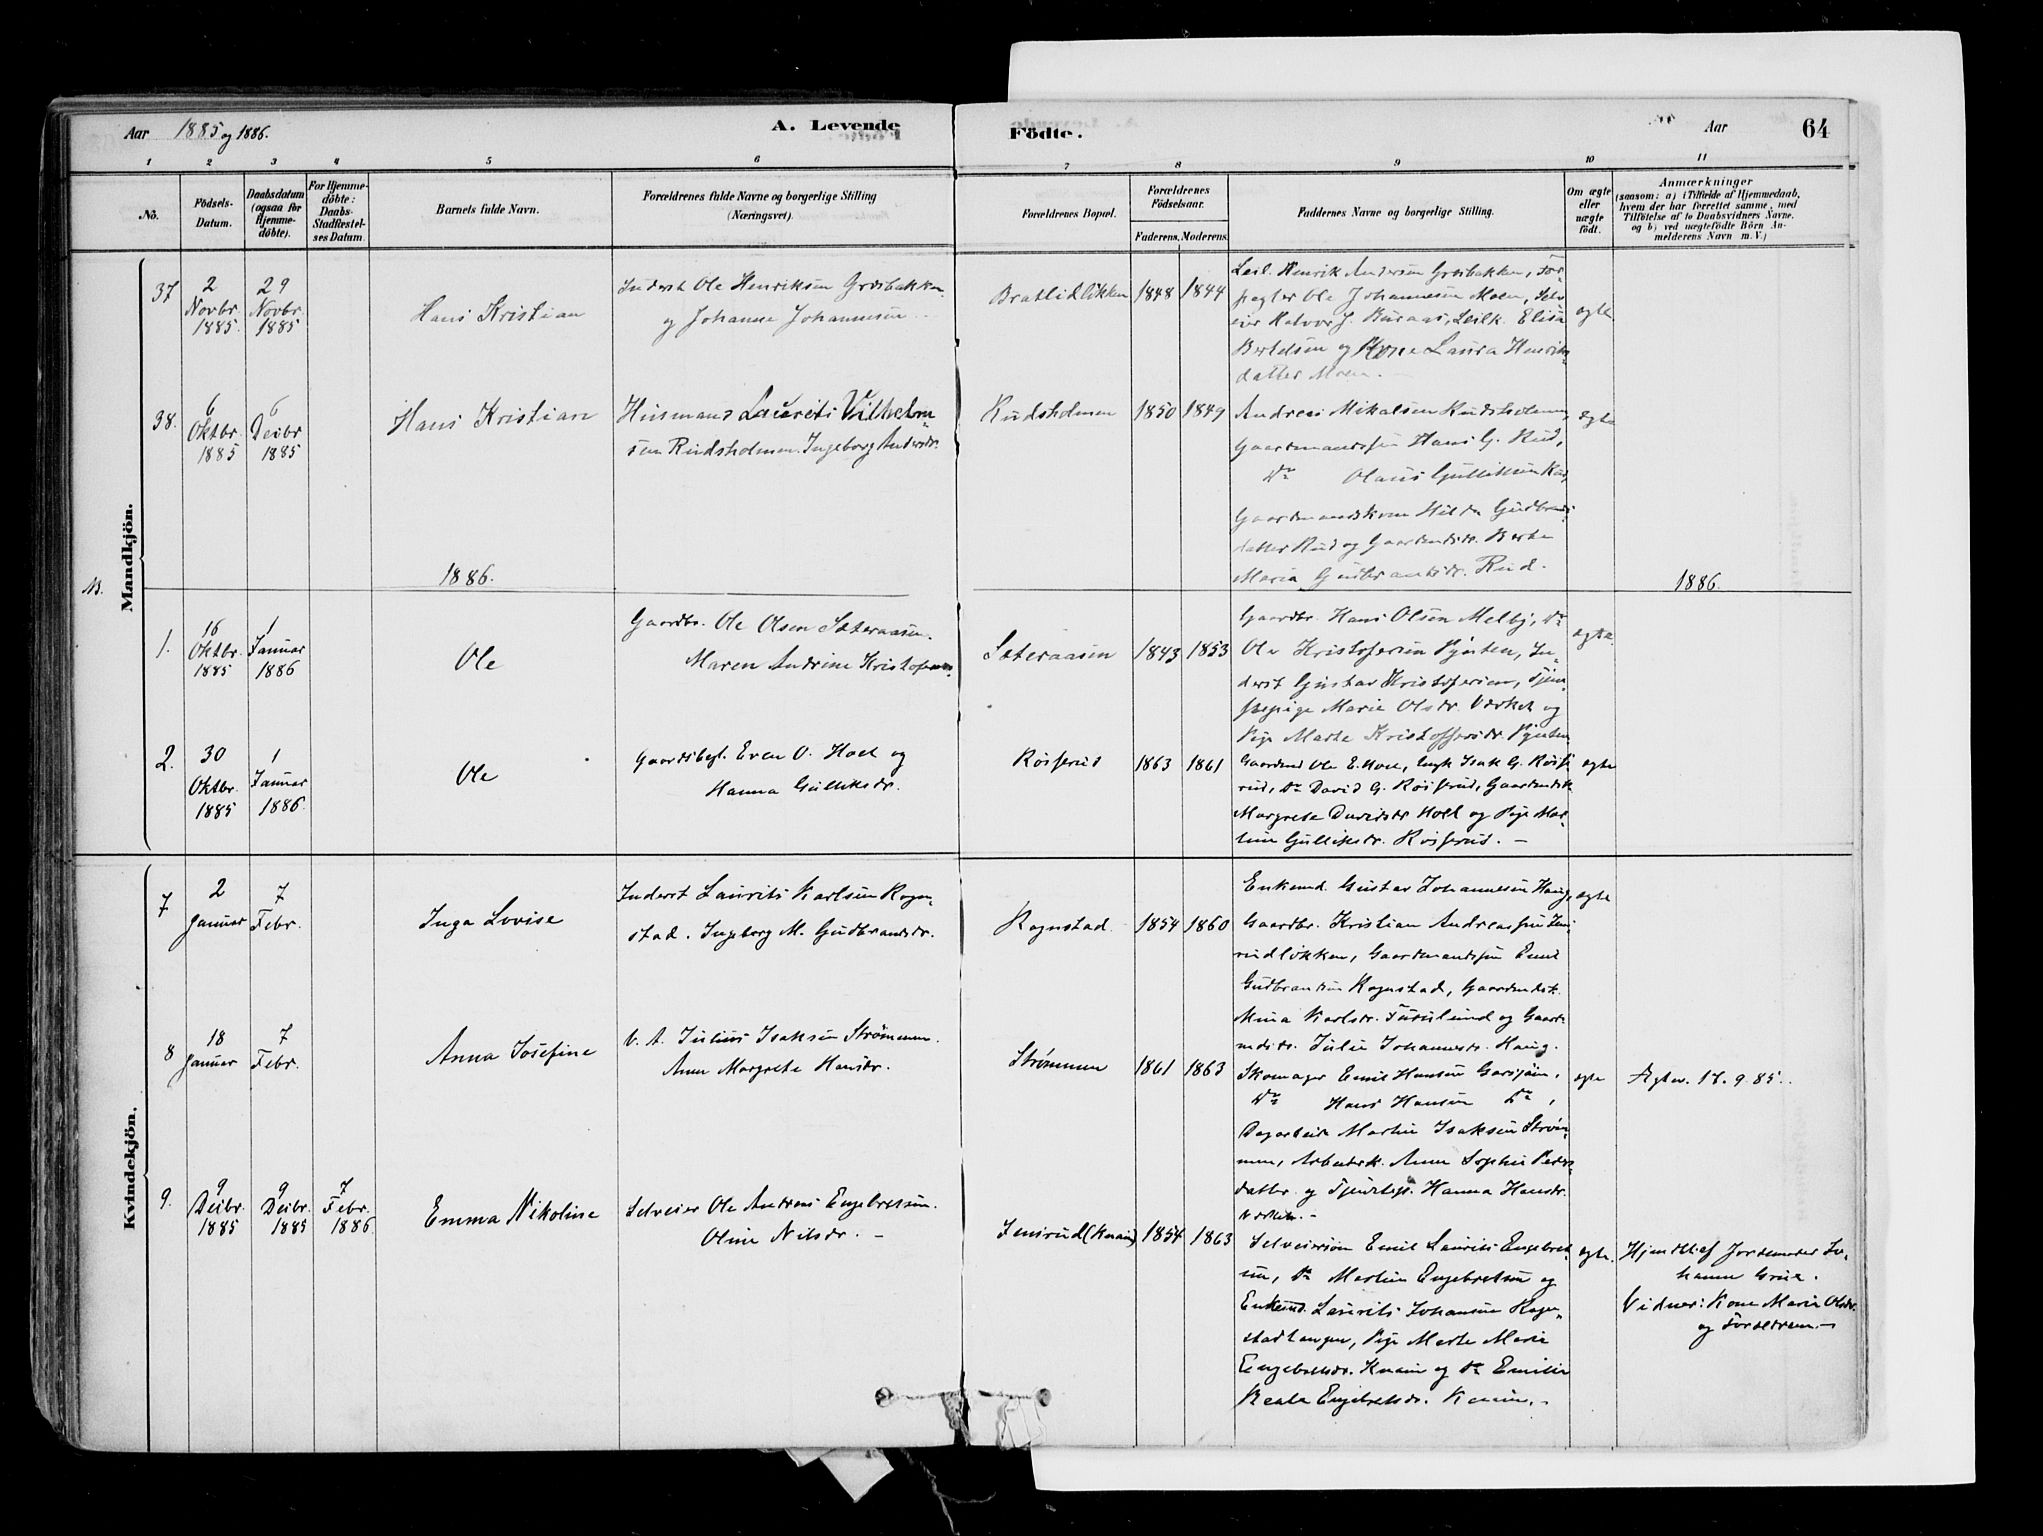 Aar 1885 og 1886.
A. Levende
Födte.
Aar
64
1 2 3 4 5 6 7 8 9 10 11
No.
Födsels-
Datum.
Daabsdatum
(ogsaa for
Hjemme-
döbte).
For Hjemme-
döbte:
Daabs-
Stadfestel-
ses Datum.
Barnets fulde Navn.
Forældrenes fulde Navne og borgerlige Stilling
(Næringsvei).
Forældrenes Bopæl.
Forældrenes
Födselsaar.
Faderens. Moderens.
Faddernes Navne og borgerlige Stilling.
Om ægte
eller
uægte
födt.
Anmærkninger
(saasom: a) i Tilfælde af Hjemmedaab,
hvem der har forrettet samme, med
Tilföielse af to Daabsvidners Navne.
og b) ved uægtefödte Börn An-
melderens Navn m. V.)
Mandkjön.
37
2
Novbr.
1885.
29
Novbr.
1885
Hans Kristian
Inderst Ole Henriksen Grøsbakken
og Johanne Johannesen
Bratlidlökken
1848 1844
Leil. Henrik Andersen Grøsbakken, For-
pagter Ole Johannesen Moen, Selv-
eier Halvor J. Buraas, Leilk. Elise
Bertelsen og Kone Laura Henriks-
datter Moen.
ægte
38.
6
Oktbr.
1885
6
Decbr
1885
Hans Kristian
Husmand Laurits Vilhelm-
sen Rudsholmen. Ingeborg Andersdr.
Rudsholmen
1850 1849
Andreas Mikalsen Rudsholmen,
Gaardmandssøn Hans G. Rud,
Do Olaus Gulliksen
Gaardmandskone Hilda Gudbrands-
datter Rud og Gaardmdsdr. Berte
Maria Gudbrandsdr. Rud.
ægte
1886.
1886.
1.
16
Oktbr.
1885
1
Januar
1886
Ole
Gaardbr. Ole Olsen Sæteraasen.
Maren Andrine Kristofersdr.
Sæteraasen
1843 1853
Gaardbr. Hans Olsen Melby, Do
Ole Kristofersen Pynten, In-
derst Gustav Kristofersen, Tjene-
stepige Marie Olsdr. Værket og
Pige Marte Kristoffersdr. Pynten
ægte
2.
30
Oktbr.
1885
1
Januar
1886.
Ole
Gaardsbest. Even O. Hoel og
Hanna Gulliksdr.
Röisrud
1863 1861
Gaardmd Ole E. Hoel, Ungk Isak G. Röis-
rud, Do David G. Röisrud, Gaardmdsk.
Margrete Davidsdr Hoel og Pige Mar-
tine Gulliksdr. Röisrud. —
ægte
Kvindekjön.
7
2
Januar
7
Febr.
Inga Lovise
Inderst Laurits Karlsen Rogn-
stad. Ingeborg M. Gudbrandsdr.
Rognstad.
1854 1860
Enkemd. Gustav Johannesen Haug,
Gaardbr. Kristian Andreassen Jens-
rudlökken, Gaardmandssøn Emil
Gudbrandsen Rognstad, Gaardmdsk.
Mina Karlsdr. Furulund og Gaard-
mdsdr. Julie Johannesdr. Haug.
ægte
8
18
Januar
7
Febr.
Anna Josefine
V. A. Julius Isaksen Strømmen.
Anne Margrete Hansdr.
Strømmen
1861 1863
Skomager Emil Hansen Garsjøen,
Do Hans Hansen Do,
Dagarbeider Martin Isaksen Strøm-
men, Arbeidsk. Anne Sophie Peders-
datter og Tjenestep. Hanna Hansdr.
Værket. —
ægte
Ægtev. 17.9.85.
9.
9
Decbr.
1885
9
Decbr.
1885
7
Febr.
1886
Emma Nikoline
Selveier Ole Andreas Engebretsen.
Oline Nilsdr. —
Jensrud (Knain)
1854 1863
Selveiersøn Emil Laurits Engebret-
sen, Do Martin Engebretsen og
Enkemd. Laurits Johansen Rogn-
stadtangen, Pige Marte Marie
Engebretsdr. Knain og Do Emilie
Beate Engebretsdr. Knain. —
ægte.
Hjemdöbt af Jordemoder Jo-
hanne Grue.
Vidner: Kone Marie Olsdr.
og Forældrene. —